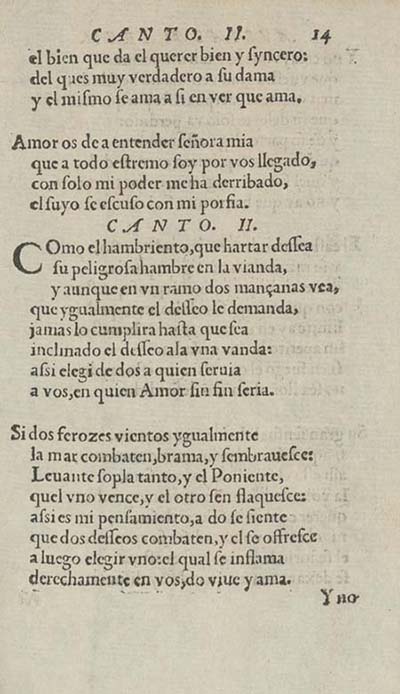 CANTO. II. 14
el bien que da el querer bien y syncero:
del ques muy verdadero a su dama
y el mismo se ama a si en ver que ama.
Amor os de a entender señora mia
que a todo estremo soy por vos llegado,
con solo mi poder me ha derribado,
el suyo se escuso con mi porfia.
CANTO. II.
COmo el hambriento, que hartar dessea
su peligrosa hambre en la vianda,
y aunque en vn ramo dos mançanas vea,
que ygualmente el desseo le demanda,
jamas lo cumplira hasta que sea
inclinado el desseo ala vna vanda:
assi elegi de dos a quien seruia
a vos, en quien Amor sin fin seria.
Si dos ferozes vientos ygualmente
la mar combaten, brama, y sembrauesce:
Leuante sopla tanto, y el Poniente,
quel vno vence, y el otro sen flaquesce:
assi es mi pensamiento, a do se siente
que dos desseos combaten, y el se offresce
a luego elegir vno: el qual se inflama
derechamente en vos, do viue y ama.
Y no